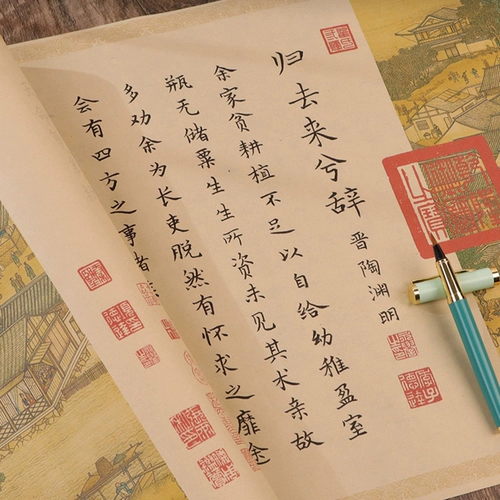 归去来兮辞 晋陶渊明
余家贫耕植不足以自给幼稚盈室
瓶无储粟生生所资未见其术亲故
多劝余为长吏脱然有怀求之靡途
会有四方之事诸